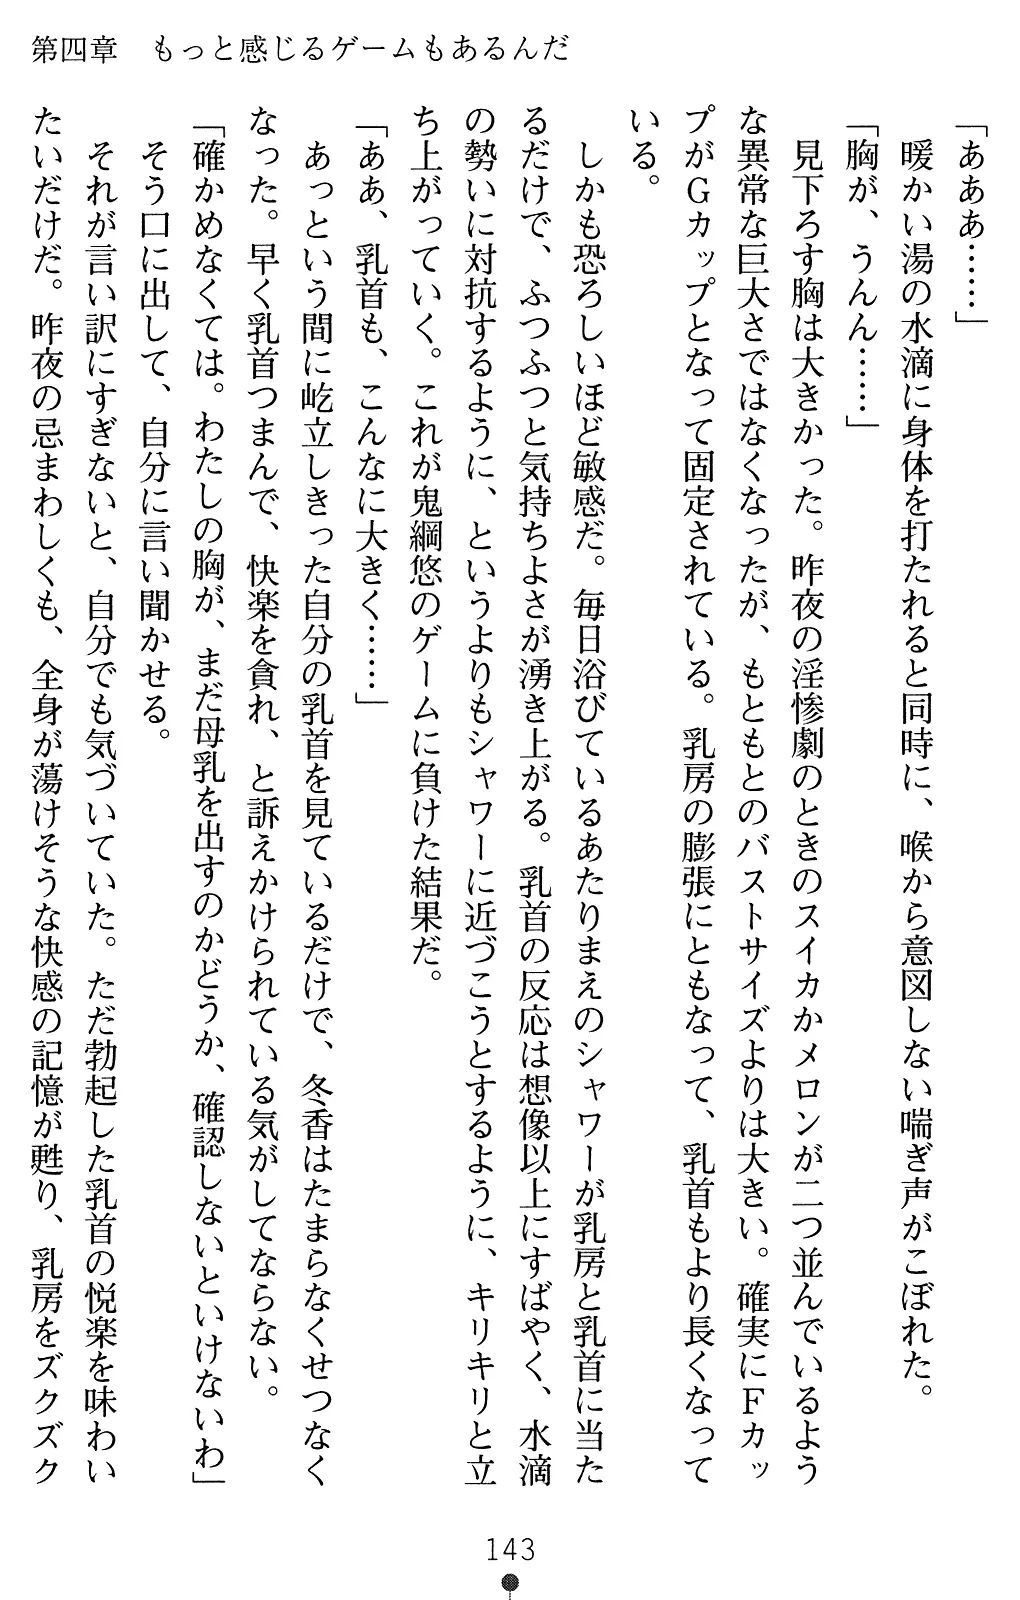 第四章　もっと感じるゲームもあるんだ
「あああ……」
　暖かい湯の水滴に身体を打たれると同時に、喉から意図しない喘ぎ声がこぼれた。
「胸が、うんん……」
　見下ろす胸は大きかった。昨夜の淫惨劇のときのスイカかメロンが二つ並んでいるよう
な異常な巨大さではなくなったが、もともとのバストサイズよりは大きい。確実にＦカッ
プがＧカップとなって固定されている。乳房の膨張にともなって、乳首もより長くなって
いる。
　しかも恐ろしいほど敏感だ。毎日浴びているあたりまえのシャワーが乳房と乳首に当た
るだけで、ふつふつと気持ちよさが湧き上がる。乳首の反応は想像以上にすばやく、水滴
の勢いに対抗するように、というよりもシャワーに近づこうとするように、キリキリと立
ち上がっていく。これが鬼綱悠のゲームに負けた結果だ。
「ああ、乳首も、こんなに大きく……」
　あっという間に屹立しきった自分の乳首を見ているだけで、冬香はたまらなくせつなく
なった。早く乳首つまんで、快楽を貪れ、と訴えかけられている気がしてならない。
「確かめなくては。わたしの胸が、まだ母乳を出すのかどうか、確認しないといけないわ」
　そう口に出して、自分に言い聞かせる。
　それが言い訳にすぎないと、自分でも気づいていた。ただ勃起した乳首の悦楽を味わい
たいだけだ。昨夜の忌まわしくも、全身が蕩けそうな快感の記憶が甦り、乳房をズクズク
143